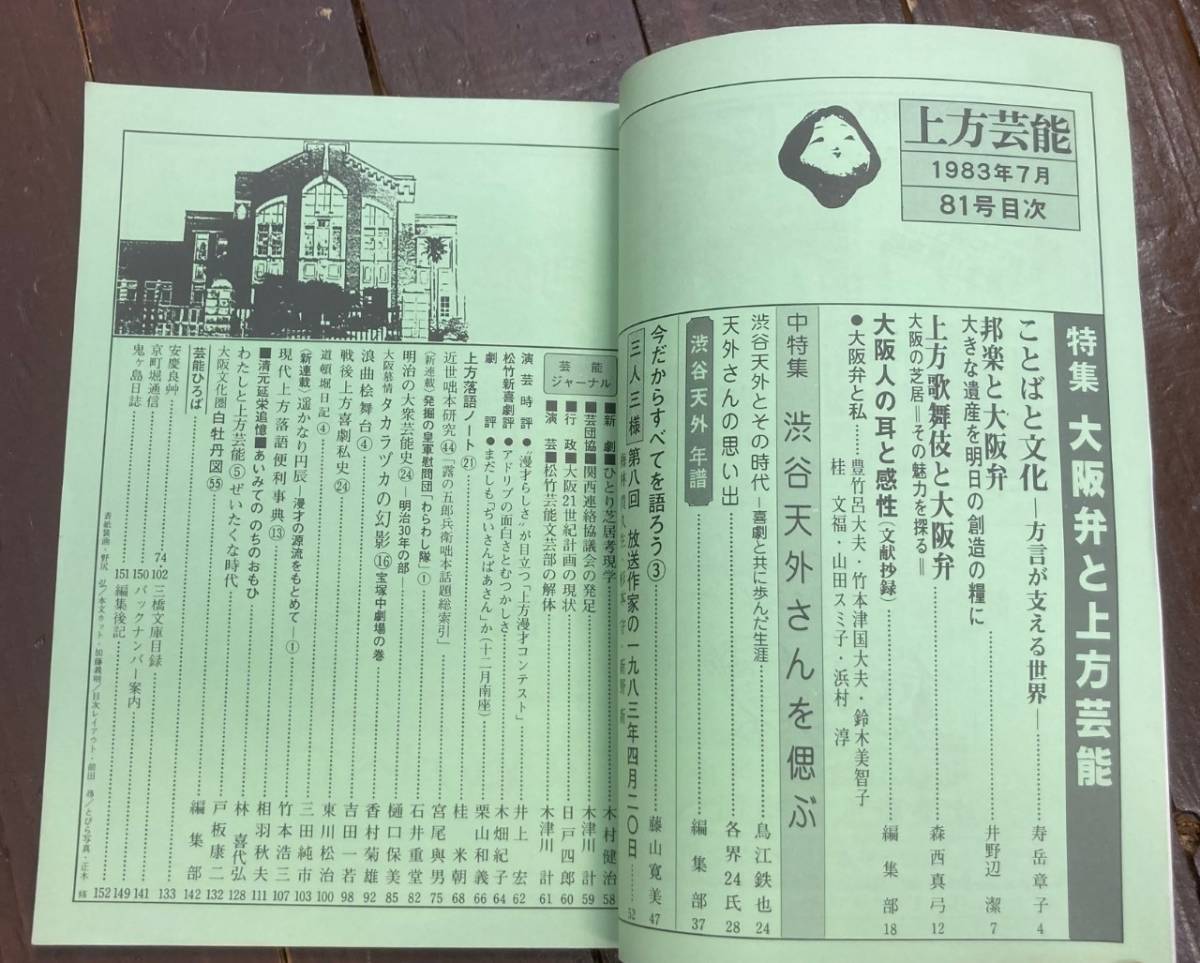 上方芸能
1983年7月
81号目次
特集 大阪弁と上方芸能
ことばと文化 方言が支える世界―……寿岳章子 4
邦楽と大阪弁
大きな遺産を明日の創造の糧に……井野辺 潔 7
上方歌舞伎と大阪弁
大阪の芝居=その魅力を探る=……森西真弓 12
大阪人の耳と感性(文献抄録)……編集部 18
●大阪弁と私……豊竹呂大夫・竹本津国大夫・鈴木美智子
桂 文福・山田スミ子・浜村 淳
中特集 渋谷天外さんを偲ぶ
渋谷天外とその時代=喜劇と共に歩んだ生涯……鳥江鉄也 24
天外さんの思い出……各界24氏 28
渋谷天外 年譜……編集部 37
今だからすべてを語ろう③……藤山寛美 47
三人三様 第八回 放送作家の一九八三年四月二〇日……52
芸能ジャーナル
■新劇■ひとり芝居考現学……木村健治 58
■芸団協■関西連絡協議会の発足……木津川 計 59
■行政■大阪21世紀計画の現状……日戸四郎 60
■演芸■松竹芸能文芸部の解体……木津川 計 61
演芸時評●“漫才らしさ”が目立つ「上方漫才コンテスト」……井上 宏 62
松竹新喜劇評●アドリブの面白さとむつかしさ……木畑紀子 64
劇評●まだしも「ぢいさんばあさん」か(十二月南座)……栗山和義 66
上方落語ノート㉑……桂 米朝 68
近世咄本研究㊹「露の五郎兵衛咄本話題総索引」……宮尾與男 75
〈新連載〉発掘の皇軍慰問団「わらわし隊」①……石井重堂 82
明治の大衆芸能史㉔―明治30年の部―……樋口保美 85
大阪慕情タカラヅカの幻影⑯宝塚中劇場の巻……香村菊雄 92
浪曲桧舞台④……吉田一若 98
戦後上方喜劇私史㉔……東川松治 100
道頓堀日記④……三田純市 103
〈新連載〉遥かなり円辰―漫才の源流をもとめて―①……竹本浩三 107
現代上方落語便利事典⑬……相羽秋夫 111
■清元延栄追憶■あいみての のちのおもひ……林 喜代弘 128
わたしと上方芸能⑤ぜいたくな時代……戸板康二 132
大阪文化圏白牡丹図55……編集部 142
芸能ひろば
安慶良艸……133
京町堀通信……74・102
鬼ヶ島日誌……151
三橋文庫目録……141
バックナンバー案内……150
編集後記……152
149